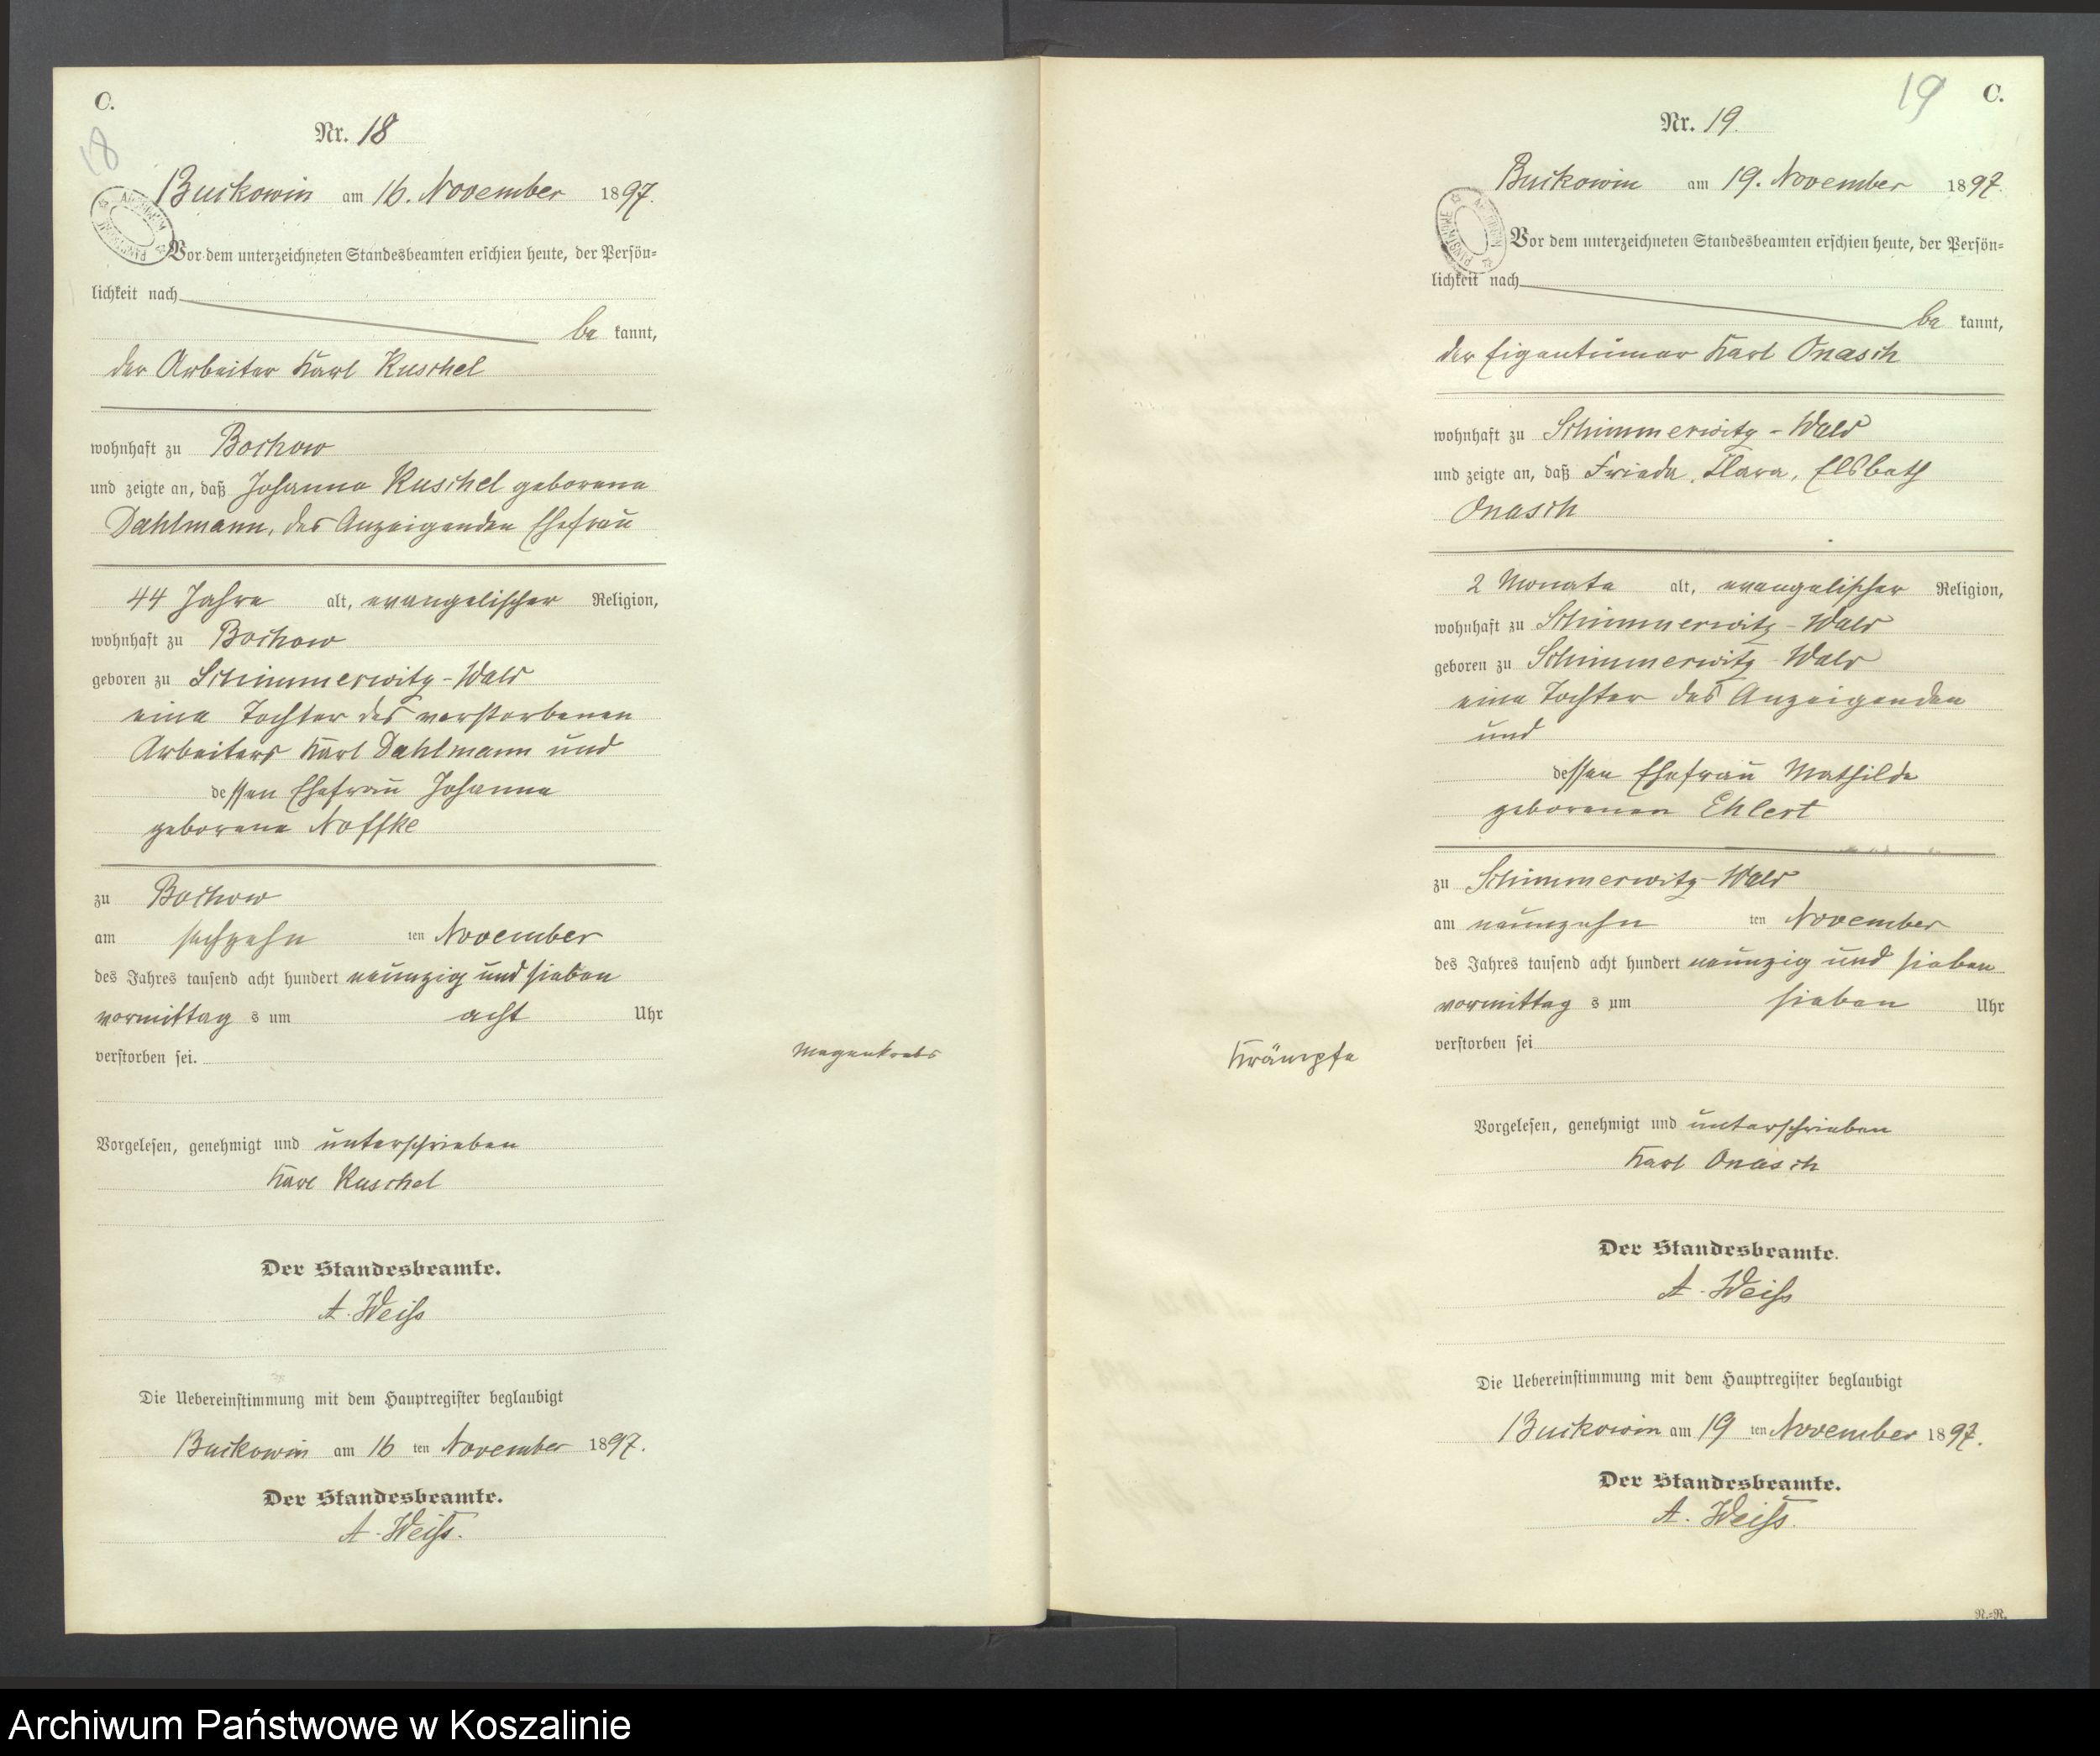 C.
18
Nr. 18
Buckowin am 16. November 1897.
Vor dem unterzeichneten Standesbeamten erschien heute, der Persön-
lichkeit nach
be kannt,
der Arbeiter Karl Kuschel
wohnhaft zu Bochow
und zeigte an, daß Johanna Kuschel geborene
Dahlmann, des Anzeigenden Ehefrau
44 Jahre alt, evangelischer Religion,
wohnhaft zu Bochow
geboren zu Schimmerwitz-Wald
eine Tochter des verstorbenen
Arbeiters Karl Dahlmann und
dessen Ehefrau Johanna
geborene Noffke
zu Bochow
am sechzehn ten November
des Jahres tausend acht hundert neunzig und sieben
vormittag s um acht Uhr
verstorben sei.
Magenkrebs
Vorgelesen, genehmigt und unterschrieben
Karl Kuschel
Der Standesbeamte.
A. Weiß
Die Uebereinstimmung mit dem Hauptregister beglaubigt
Buckowin am 16 ten November 1897.
Der Standesbeamte.
A. Weiß.
19
C.
Nr. 19.
Buckowin am 19. November 1897.
ARCHIWUM PAŃSTWOWE
Vor dem unterzeichneten Standesbeamten erschien heute, der Persön-
lichkeit nach
be kannt,
der Eigentümer Karl Onasch
wohnhaft zu Schimmerwitz-Wald
und zeigte an, daß Frieda, Klara, Elsbeth
Onasch
2 Monate alt, evangelischer Religion,
wohnhaft zu Schimmerwitz-Wald
geboren zu Schimmerwitz-Wald
eine Tochter des Anzeigenden
und
dessen Ehefrau Mathilde
geborenen Ehlert
zu Schimmerwitz-Wald
am neunzehn ten November
des Jahres tausend acht hundert neunzig und sieben
vormittag s um sieben Uhr
verstorben sei
Krämpfe
Vorgelesen, genehmigt und unterschrieben
Karl Onasch
Der Standesbeamte.
A. Weiß
Die Uebereinstimmung mit dem Hauptregister beglaubigt
Buckowin am 19 ten November 1897.
Der Standesbeamte.
A. Weiß.
N.=N.
Archiwum Państwowe w Koszalinie